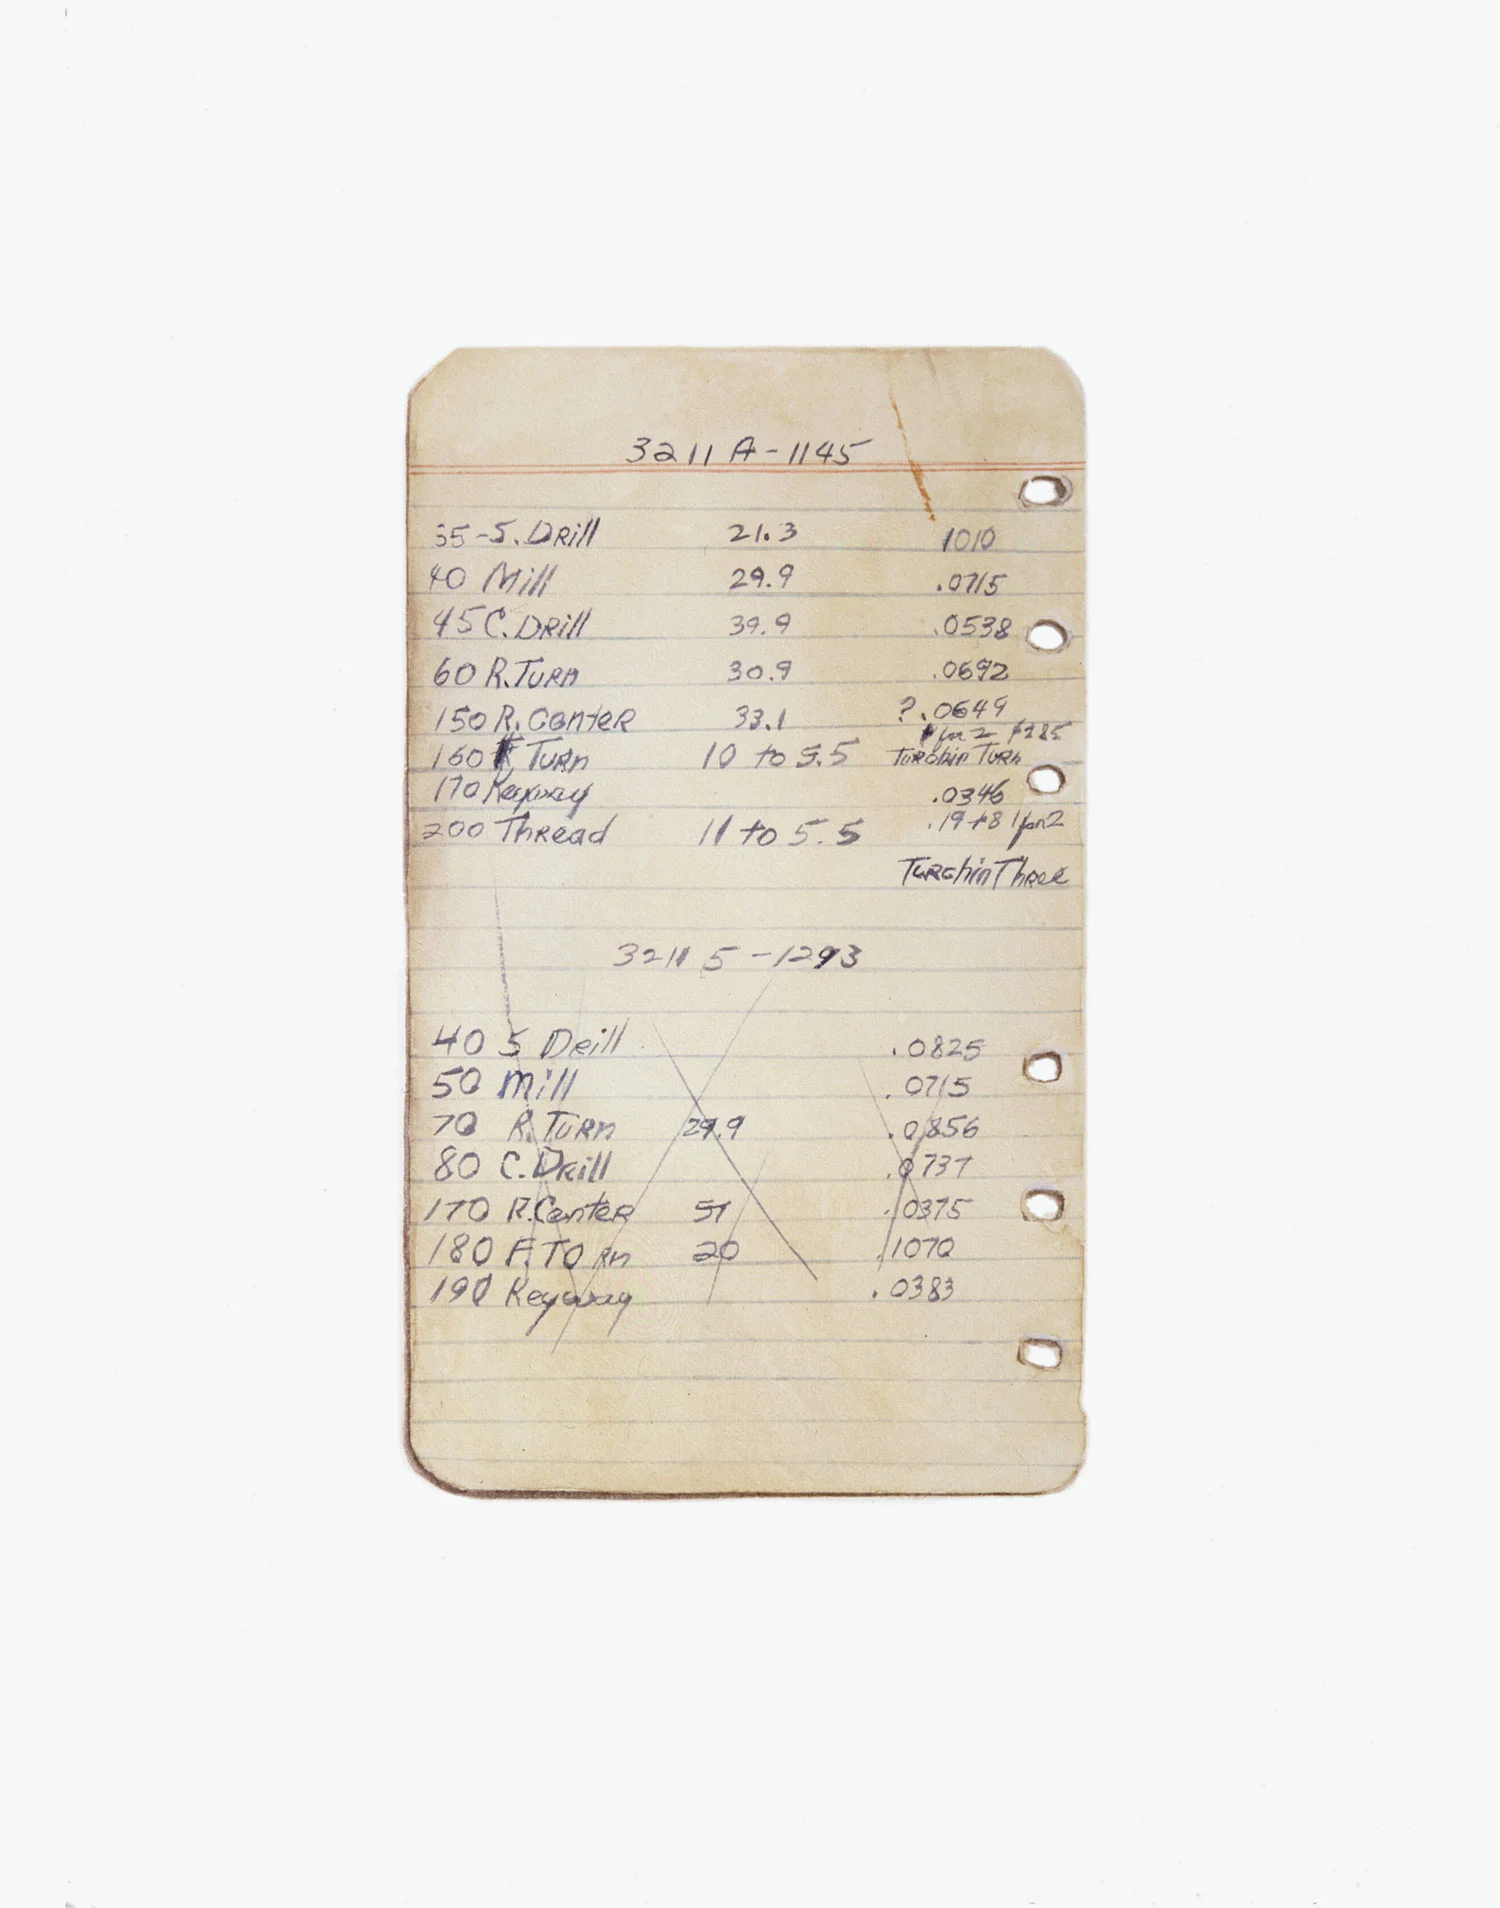 3211 A-1145
35-S. Drill 21.3 1010
40 Mill 29.9 .0715
45 C. Drill 39.9 .0538
60 R. Turn 30.9 .0692
150 R. Center 33.1 ?.0649
1 for 2
160 F Turn 10 to 5.5 Turchin Turn
170 Keyway .0346
200 Thread 11 to 5.5 .19 1 for 2
Turchin Three
3211 5-1293
40 S Drill .0825
50 Mill .0715
70 R. Turn 29.9 .0856
80 C. Drill .0737
170 R. Center 57 .0375
180 F. TURN 20 .1070
190 Keyway .0383